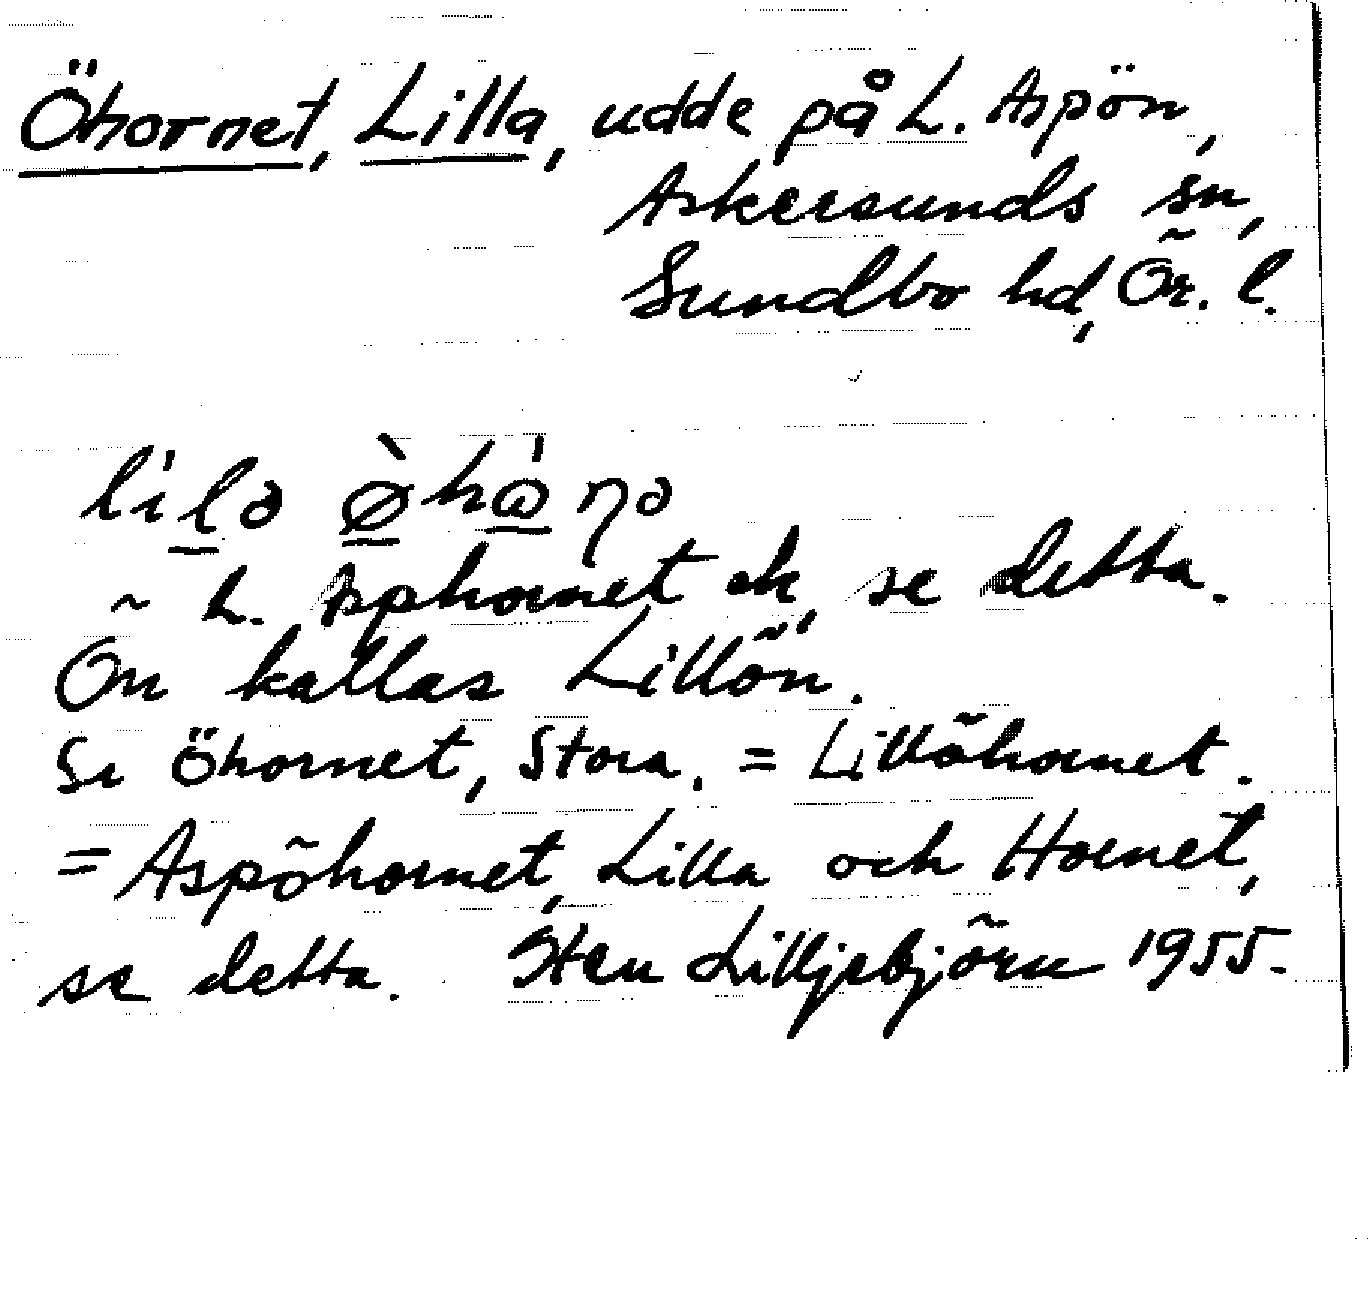 Öhornet, Lilla, udde på L. Aspön,
Askersunds sn,
Sundbo hd, Ör. l.
~ L. Asphornet ek, se detta.
Ön kallas Lillön.
Se Öhornet, Stora. = Lillöhornet.
= Aspöhornet, Lilla och Hornet,
se detta. Sten Lilljebjörn 1955.